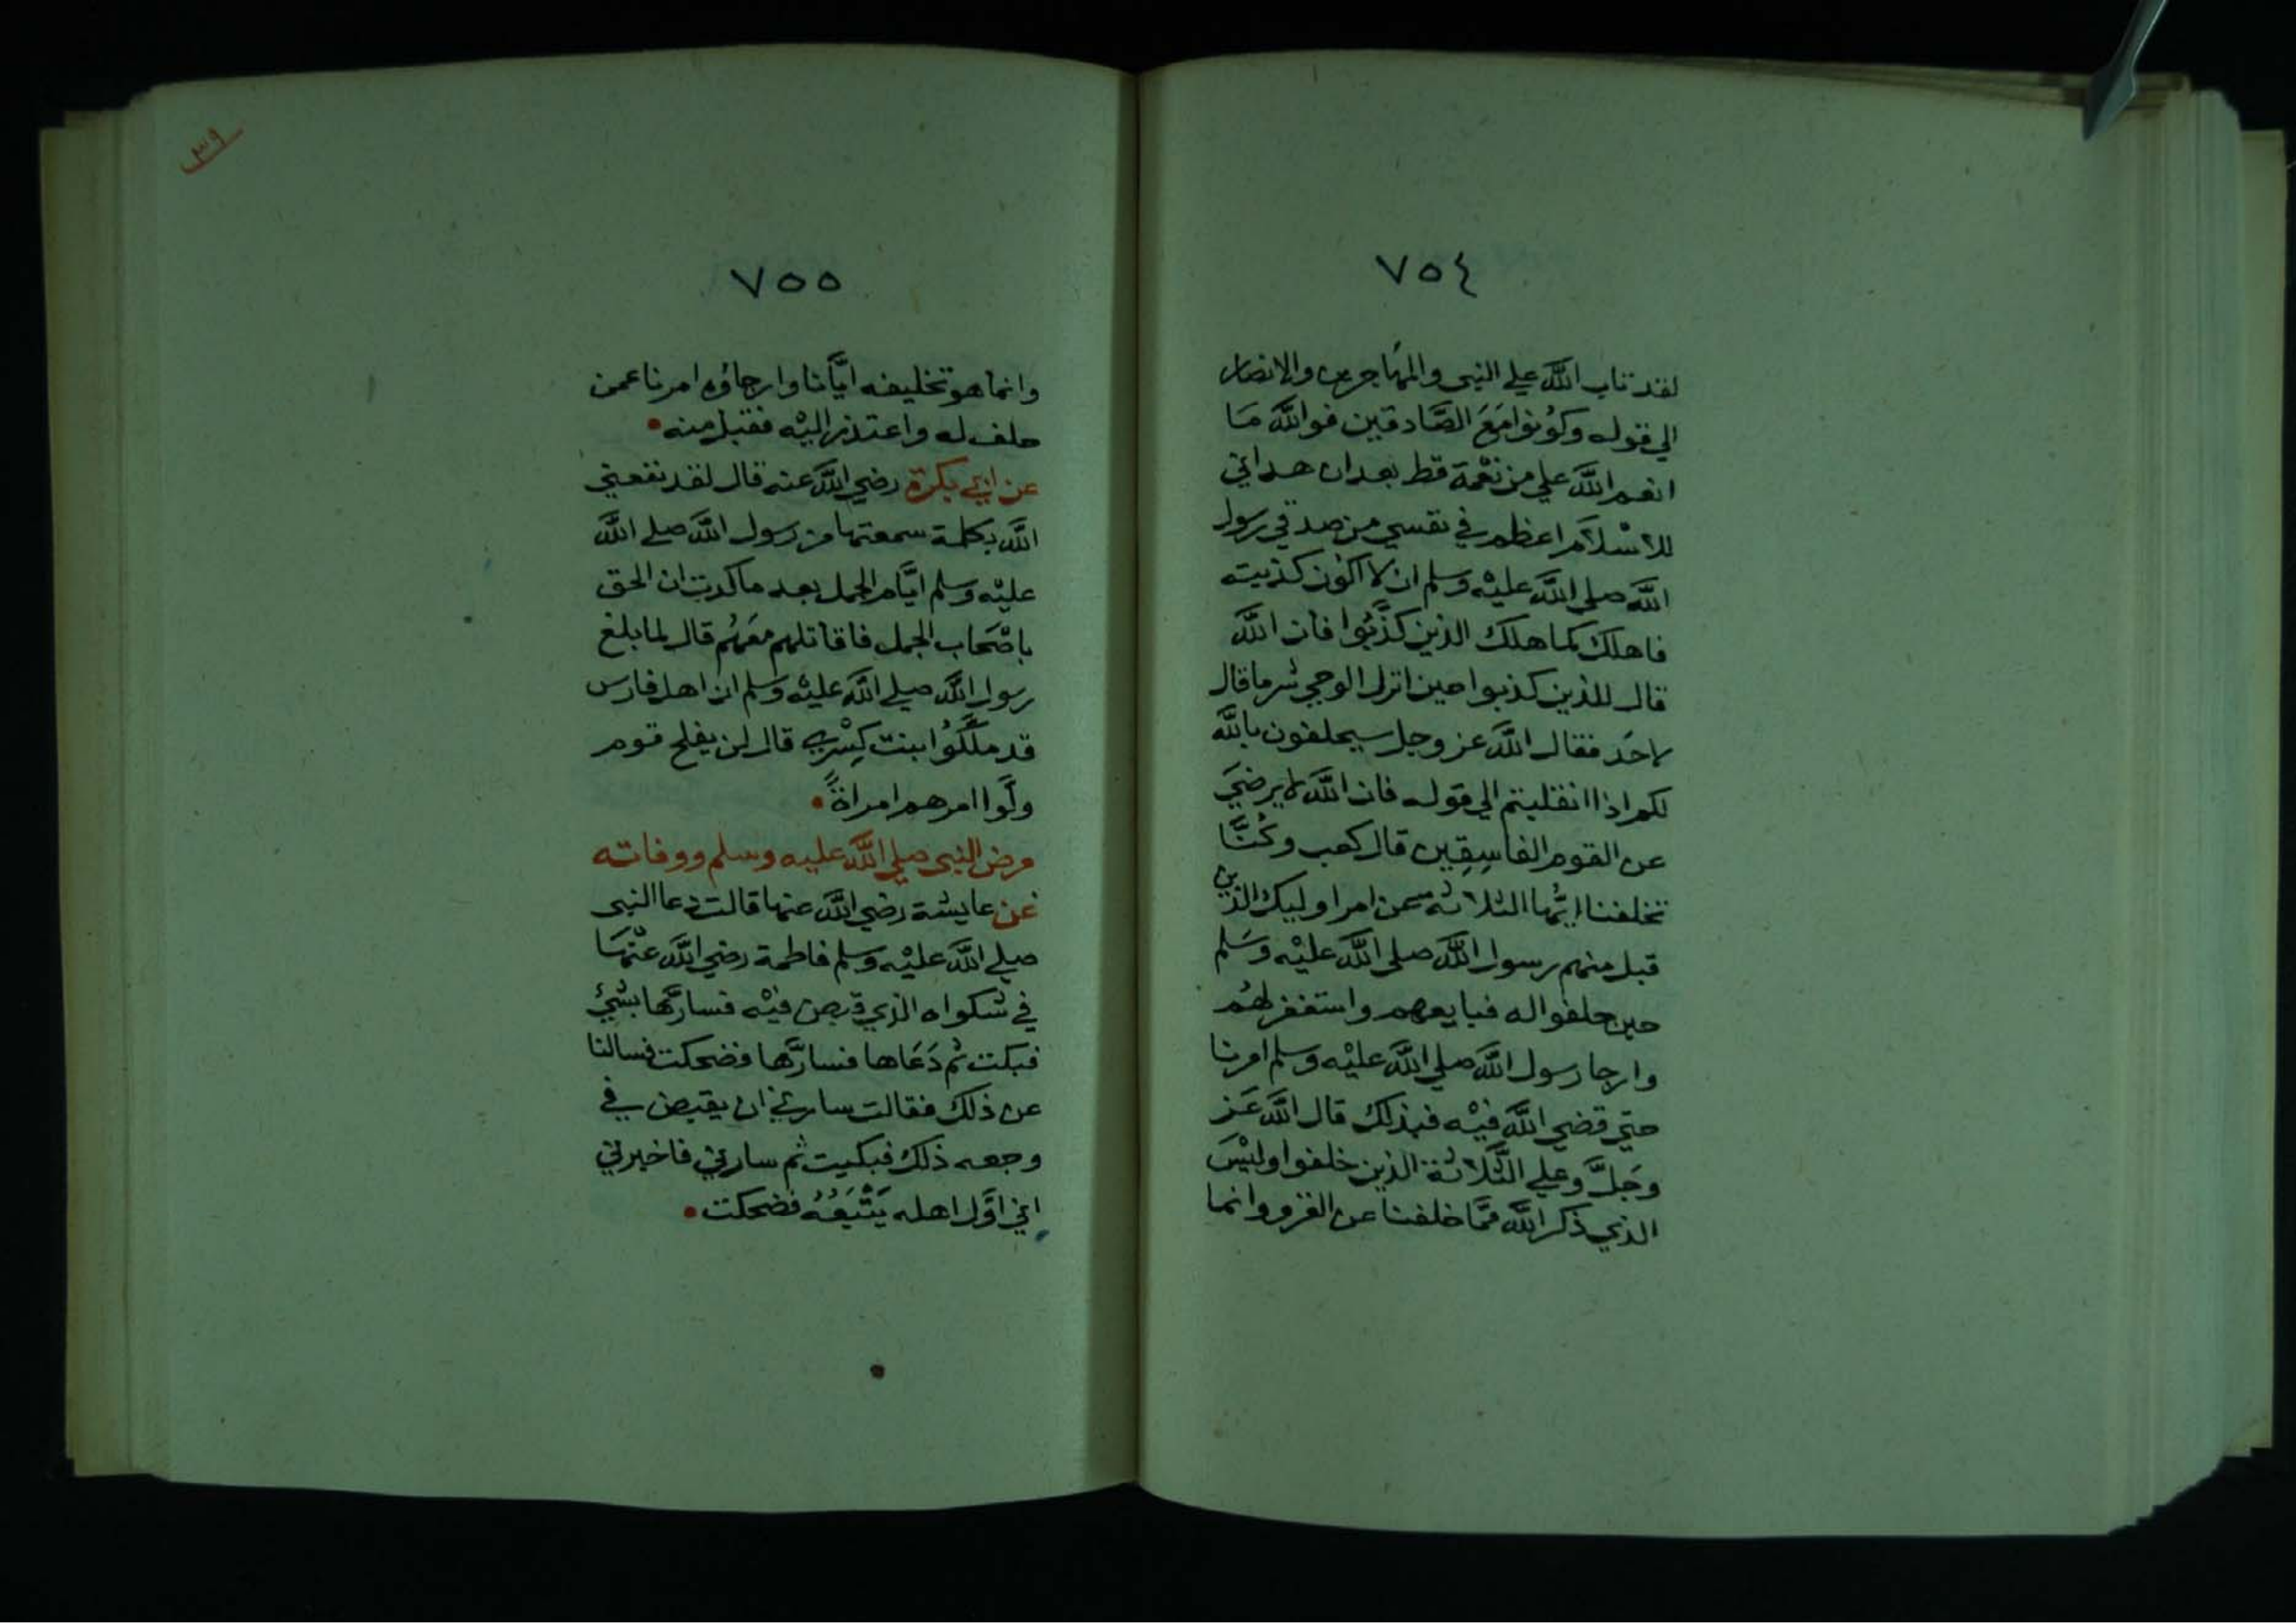 ٧٥٤
لقد تاب الله علي النبي والمهاجرين والانصار
الي قوله وكونوا مَعَ الصَّادقين فوالله مَا
انعم الله علي من نعْمة قط بعد ان هداني
للاسْلاَم اعظم في نفسي من صدقي رسول
الله صلي الله عليْه وسلم ان لا اكون كذبيته
فاهلك كما هلك الذين كذَّبُوا فان الله
قال للذين كذبوا حين انزل الوحي شر ما قال
لاحَد فقال الله عز وجل سيحلفون بالله
لكم اذا انقلبتم الي قوله فان الله لا يرضيَ
عن القوم الفاسِقِين قال كعب وكُنَّا
تخلفنا ايُّها الثلاثه عن امر اوليك الذين
قبل منهم رسول الله صلي الله عليْه وسَلم
حين حلفوا له فبايعهم واستغفر لهُم
وارجا رسول الله صلي الله عليْه وسلم امرنا
حتي قضي الله فيْه فبذلك قال الله عَز
وجَلَّ وعلي الثَّلاثة الذين خلفوا وليْسَ
الذي ذكر الله ممَّا خلفنا عن الغزو وانما
٣٩
٧٥٥
وانما هو تخليفه ايَّانا وارجاؤه امرنا عمن
حلف له واعتذر اليْه فقبل منه
عن ابي بكرة رضي الله عنه قال لقد نفعني
الله بكلمة سمعتها من رسول الله صلي الله
عليْه وسلم ايَّام الجمل بعد ما كدت ان الحق
باصْحَاب الجمل فاقاتلهم معَهُم قال لما بلغ
رسول الله صلي الله عليْه وسلم ان اهل فارس
قد ملَّكُوا بنت كِسْري قال لن يفلح قوم
ولَّوا امرهم امراةً
مرض النبي صلي الله عليه وسلم ووفاته
عن عايشة رضي الله عنها قالت دعا النبي
صلي الله عليْه وسلم فاطمة رضي الله عنْهَا
في شكواه الذي قبض فيْه فسارَّها بشيْئ
فبكت ثم دَعَاها فسارَّها فضحكت فسالنا
عن ذلك فقالت سارني ان يقبض في
وجعه ذلك فبكيت ثم سارني فاخبرني
اني اوَّل اهله يَتْبَعُهُ فضحكت